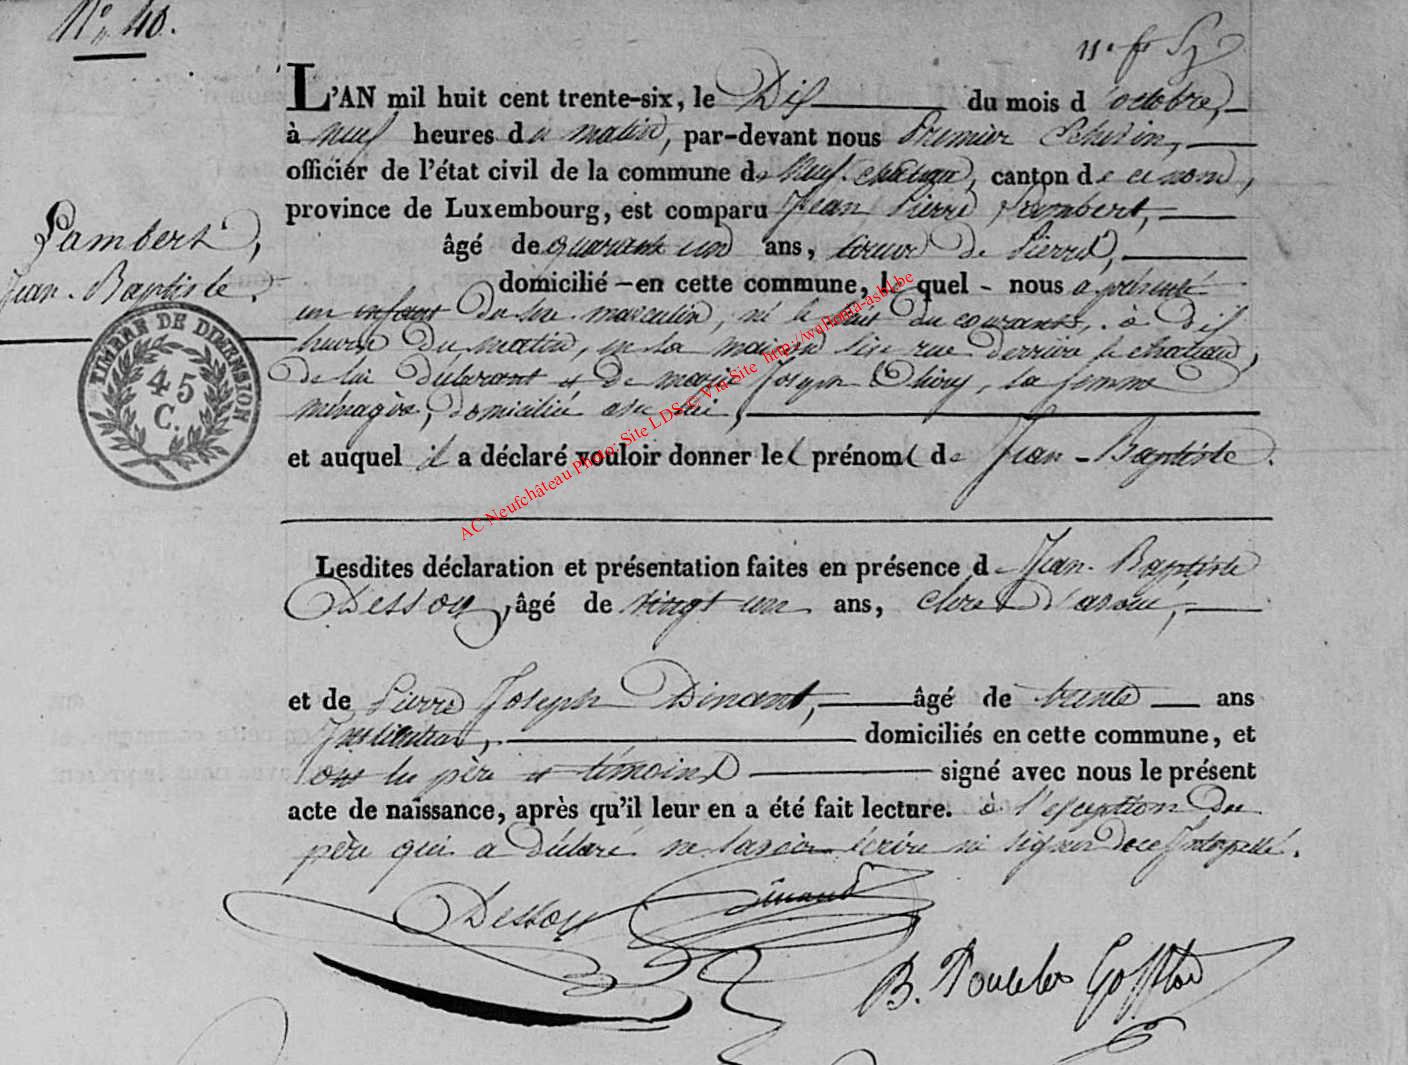 N° 40.
L'AN mil huit cent trente-six, le Dix du mois d'octobre,
à neuf heures du matin, par-devant nous Premier Echevin,
officier de l'état civil de la commune de Neufchateau, canton de ce nom,
province de Luxembourg, est comparu Jean Pierre Lambert,
âgé de quarante un ans, de Pierre,
domicilié en cette commune, lequel nous a présenté
Lambert,
Jean-Baptiste.
un enfant du sexe masculin, né le huit du courant, à dix
heures du matin, en sa maison sise rue derrière le chateau,
de lui déclarant et de marie Joseph sa femme
ménagère, domiciliée avec lui,
et auquel il a déclaré vouloir donner le prénom de Jean-Baptiste.
TIMBRE DE DIMENSION
45
C.
AC Neufchâteau Photo: Site LDS © Via Site http://wallonia-asbl.be
Lesdites déclaration et présentation faites en présence de Jean-Baptiste
Dessoy, âgé de vingt un ans, clerc d'avoué,
et de Pierre Joseph Dinant, âgé de trente ans
Instituteur, domiciliés en cette commune, et
ont les père et témoins signé avec nous le présent
acte de naissance, après qu'il leur en a été fait lecture. à l'exception du
père qui a déclaré ne savoir écrire ni signer de ce Interpellé.
Dessoy Dinant
B.